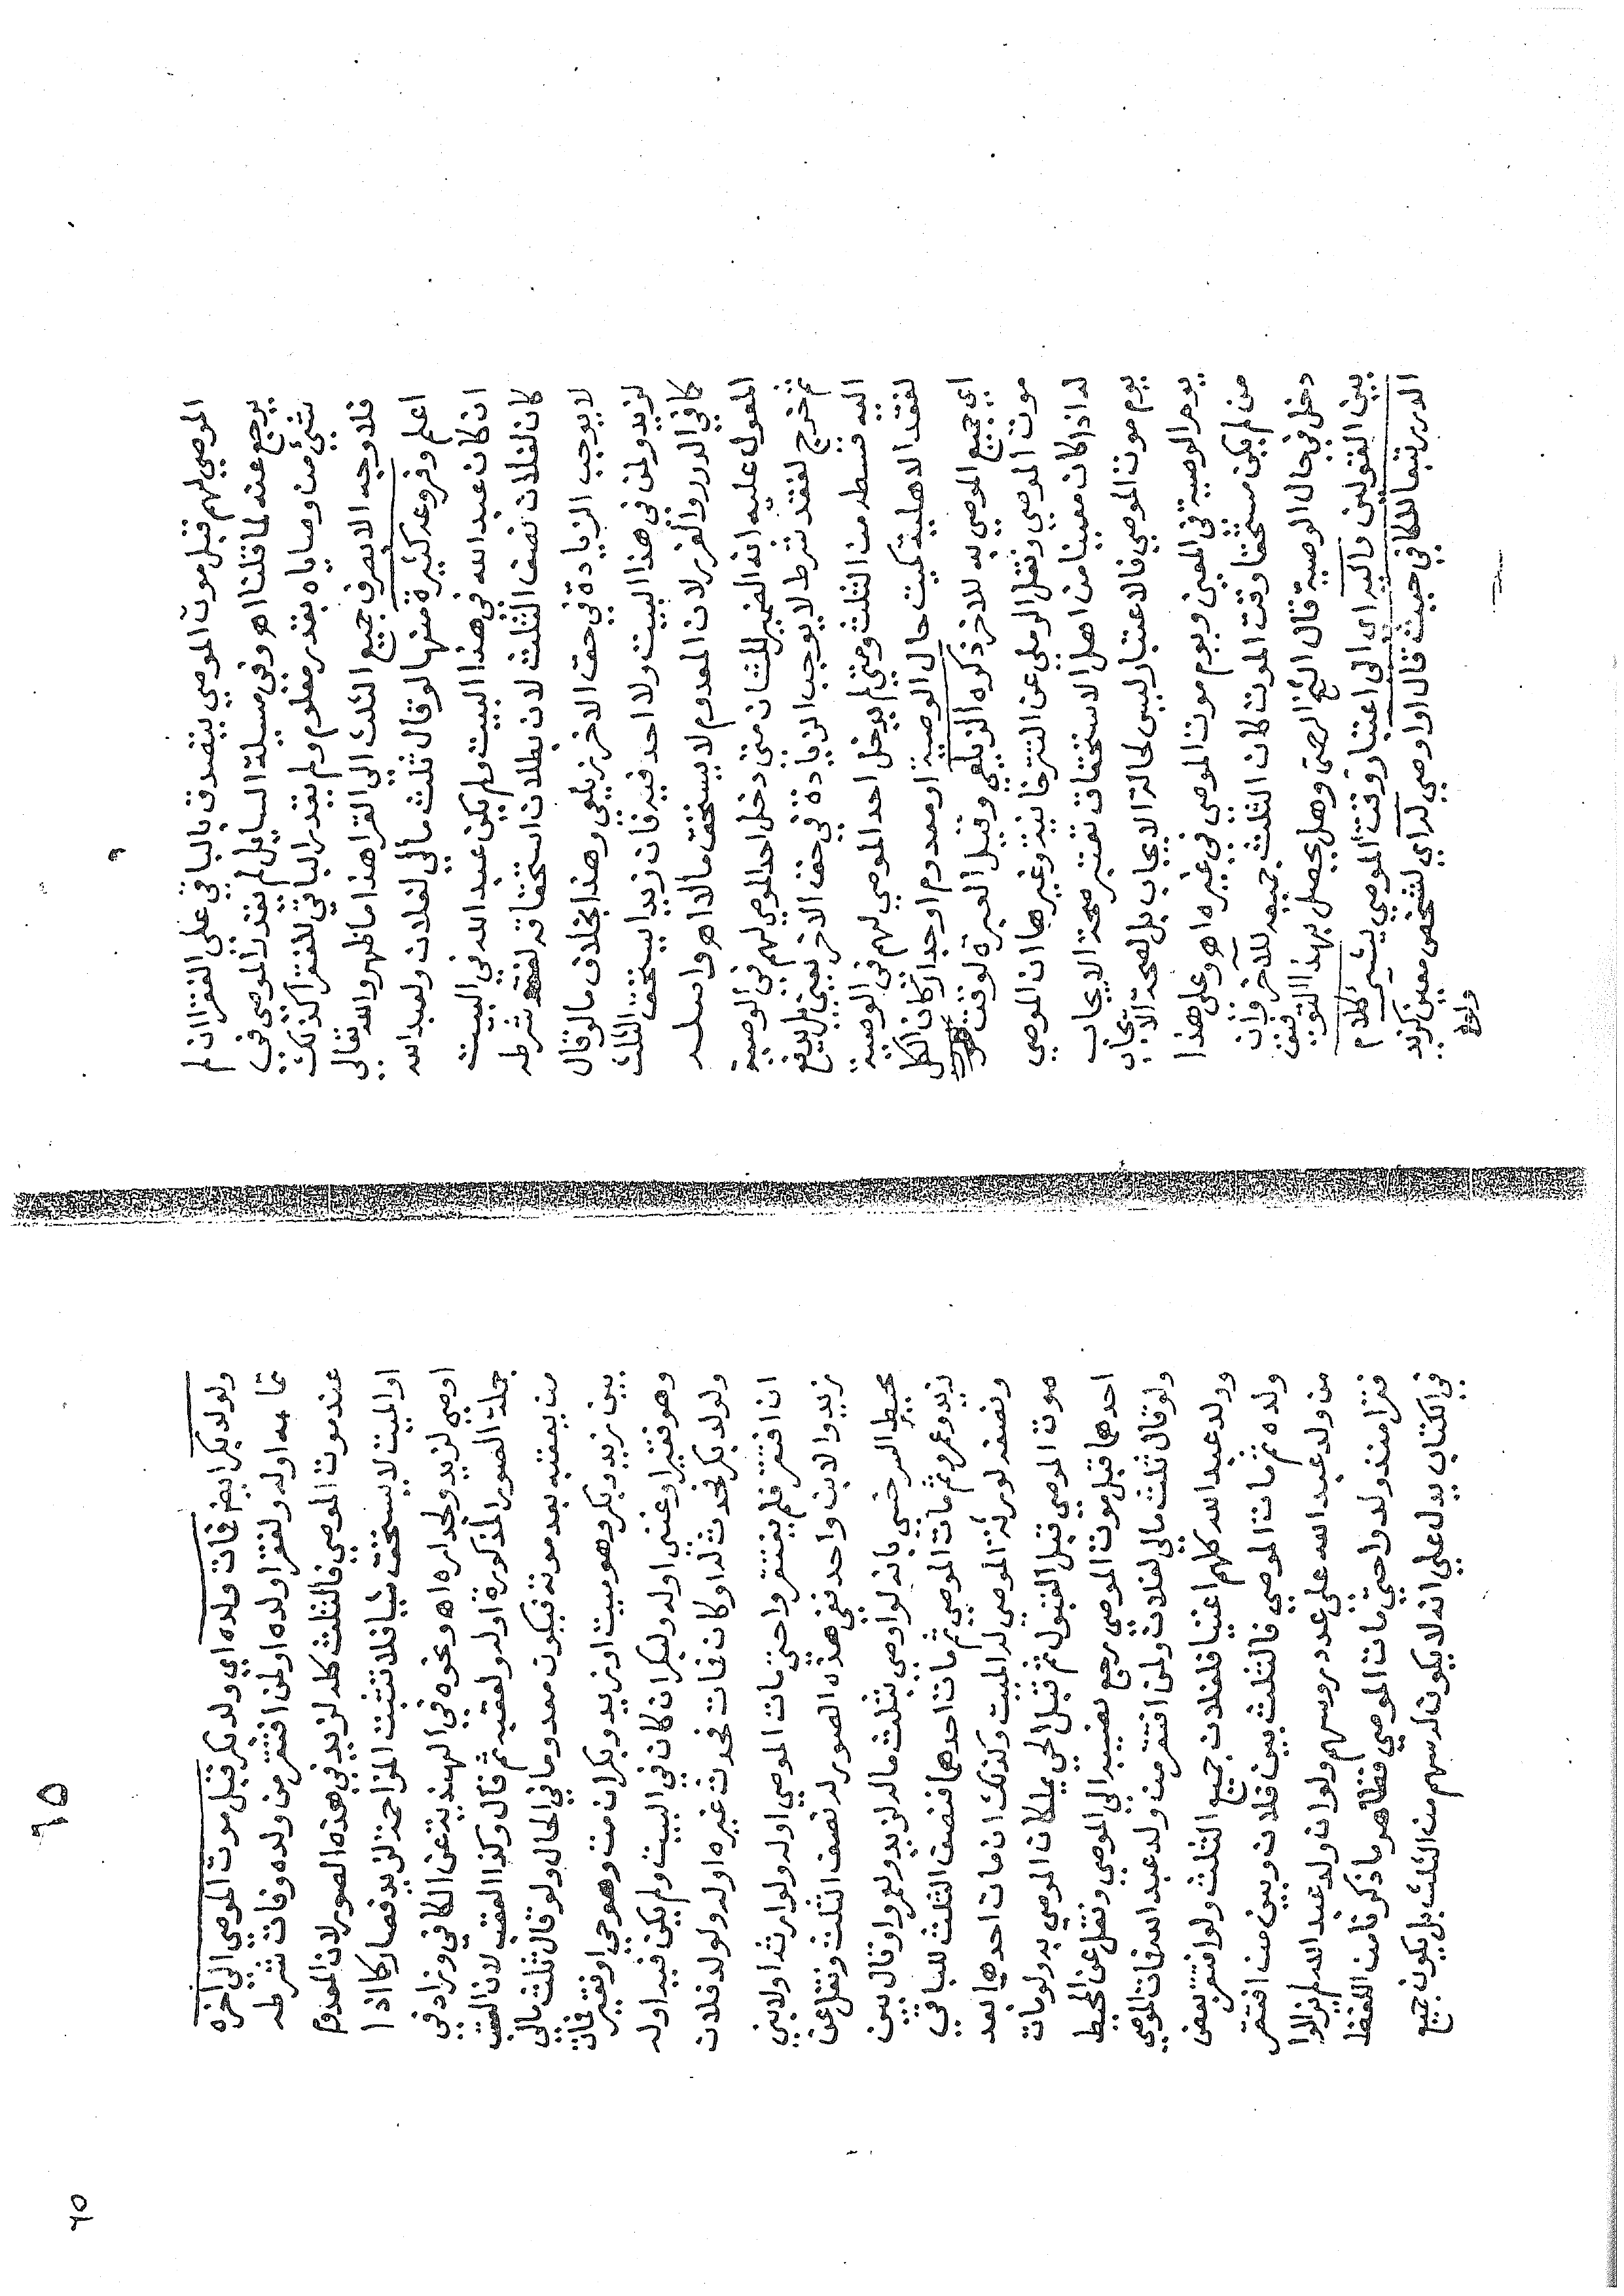 الموصي لهم قبل موت الموصي يتصدق بالباقي على الفقرا ان لم
يرجع عنه لما قلنا اهـ وفي مسيلة السايل لم يقدر الموصي في
شيء من وصاياه بقدر معلوم ولم يقدر الباقي للفقرا كذلك
فلا وجه الا بصرف جميع الثلث الى الفقرا هذا ما ظهر والله تعالى
اعلم وفروعه كثيرة منها لو قال ثلث مالي لفلان ولعبد الله
ان كان عبد الله في هذا البيت ولم يكن عبد الله في البيت
كان لفلان نصف الثلث لان بطلان استحقاقه لفقد شرطه
لا يوجب الزيادة في حق الاخر زيلعي وهذا بخلاف ما لو قال
لزيد ولمن في هذا البيت ولا احد فيه فان زيدا يستحق الثلث
كما في الدرر والغرر لان المعدوم لا يستحق مالا اهـ واصله
المعول عليه انه الضمير للشان متى دخل احد الموصي لهم في الوصية
ثم خرج لفقد شرط لا يوجب الزيادة في حق الاخر يعني بل يدفع
اليه قسطه من الثلث ومتى لم يدخل احد الموصي لهم في الوصية
لفقد الاهلية كميت حال الوصية او معدوم او جدار كان الكل
اي جميع الموصي به للاخر ذكره الزيلعي وقيل العبرة لوقت
موت الموصي ونقل الرملي عن التترخانية وغيرها ان الموصي
له اذا كان معينا من اهل الاستحقاق تعتبر صحة الايجاب
يوم موت الموصي فالاعتبار ليس لحالة الايجاب بل لصحة الايجاب
يوم الوصية في المعين ويوم موت الموصي في غيره اهـ وعلى هذا
من لم يكن مستحقا وقت الموت كان الثلث جميعه للآخر وان
دخل في حال الوصية قال الشيخ الرحمتي وهل يحصل بهذا التوفيق
بين القولين واليه اي الى اعتبار وقت الموصي يشير كلام
الدرر تبعا للكافي حيث قال او اوصي له اي لشخص معين كزيد
ولولد
٦٥
ولولد بكر ايضا فمات ولده اي ولد بكر قبل موت الموصي الى اخره
تمامه او له ولفقرا ولده او لمن افتقر من ولده وفات شرطه
عند موت الموصي فالثلث كله لزيد في هذه الصور لان المعدوم
او الميت لا يستحق شيا فلا تثبت المزاحمة لزيد فصار كما اذا
اوصي لزيد ولجداره اهـ ونحوه في الهندية عن الكافي وزاد في
جملة الصور المذكورة او له ولعقبه ثم قال وكذا العقب لان العقب
من يعقبه بعد موته فيكون معدوما في الحال ولو قال ثلث مالي
بين زيد وبكر وهو ميت او زيد وبكر ان مت وهو حي او فقير فمات
وهو فقير او غني او له ولبكر ان كان في البيت ولم يكن فيه او له
ولولد بكر فحدث له او كان فمات فحدث غيره او له ولولد فلان
ان افتقر فلم يفتقر واحتى مات الموصي او له ولوارثه او لابني
زيد والابن واحد ففي هذه الصور له نصف الثلث ونقل عن
محيط السرخسي بانه لو اوصي بثلث ماله لزيد ولعمرو او قال بين
زيد وعمرو ثم مات الموصي ثم مات احدهما فنصف الثلث للباقي
ونصفه لورثة الموصي له الميت وكذلك ان مات احدهما بعد
موت الموصي قبل القبول ثم قبل الحي يملكان الموصي به ولو مات
احدهما قبل موت الموصي رجع نصيبه الى الموصي ونقل عن المحيط
ولو قال ثلث مالي لفلان ولمن افتقر من ولد عبد الله فمات الموصي
وولد عبد الله كلهم اغنيا فلفلان جميع الثلث ولو افتقر بعض
ولده ثم مات الموصي فالثلث بين فلان وبين من افتقر
من ولد عبد الله على عدد روسهم ولو ان ولد عبد الله لم يزالوا
فقرا منذ ولدوا حتى مات الموصي فظاهر ما ذكرنا من اللفظ
في الكتاب يدل علي انه لا يكون لهم سهم من الثلث بل يكون جميع
٦٥